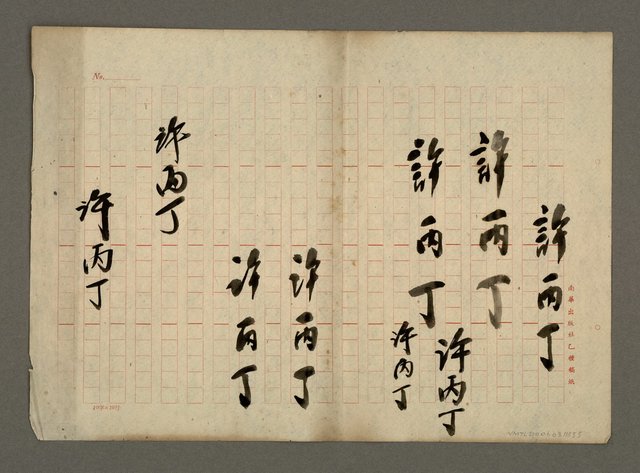 許丙丁
許丙丁
許丙丁
許丙丁
許丙丁
許丙丁
許丙丁
許丙丁
許丙丁
南華出版社乙種稿紙
No.